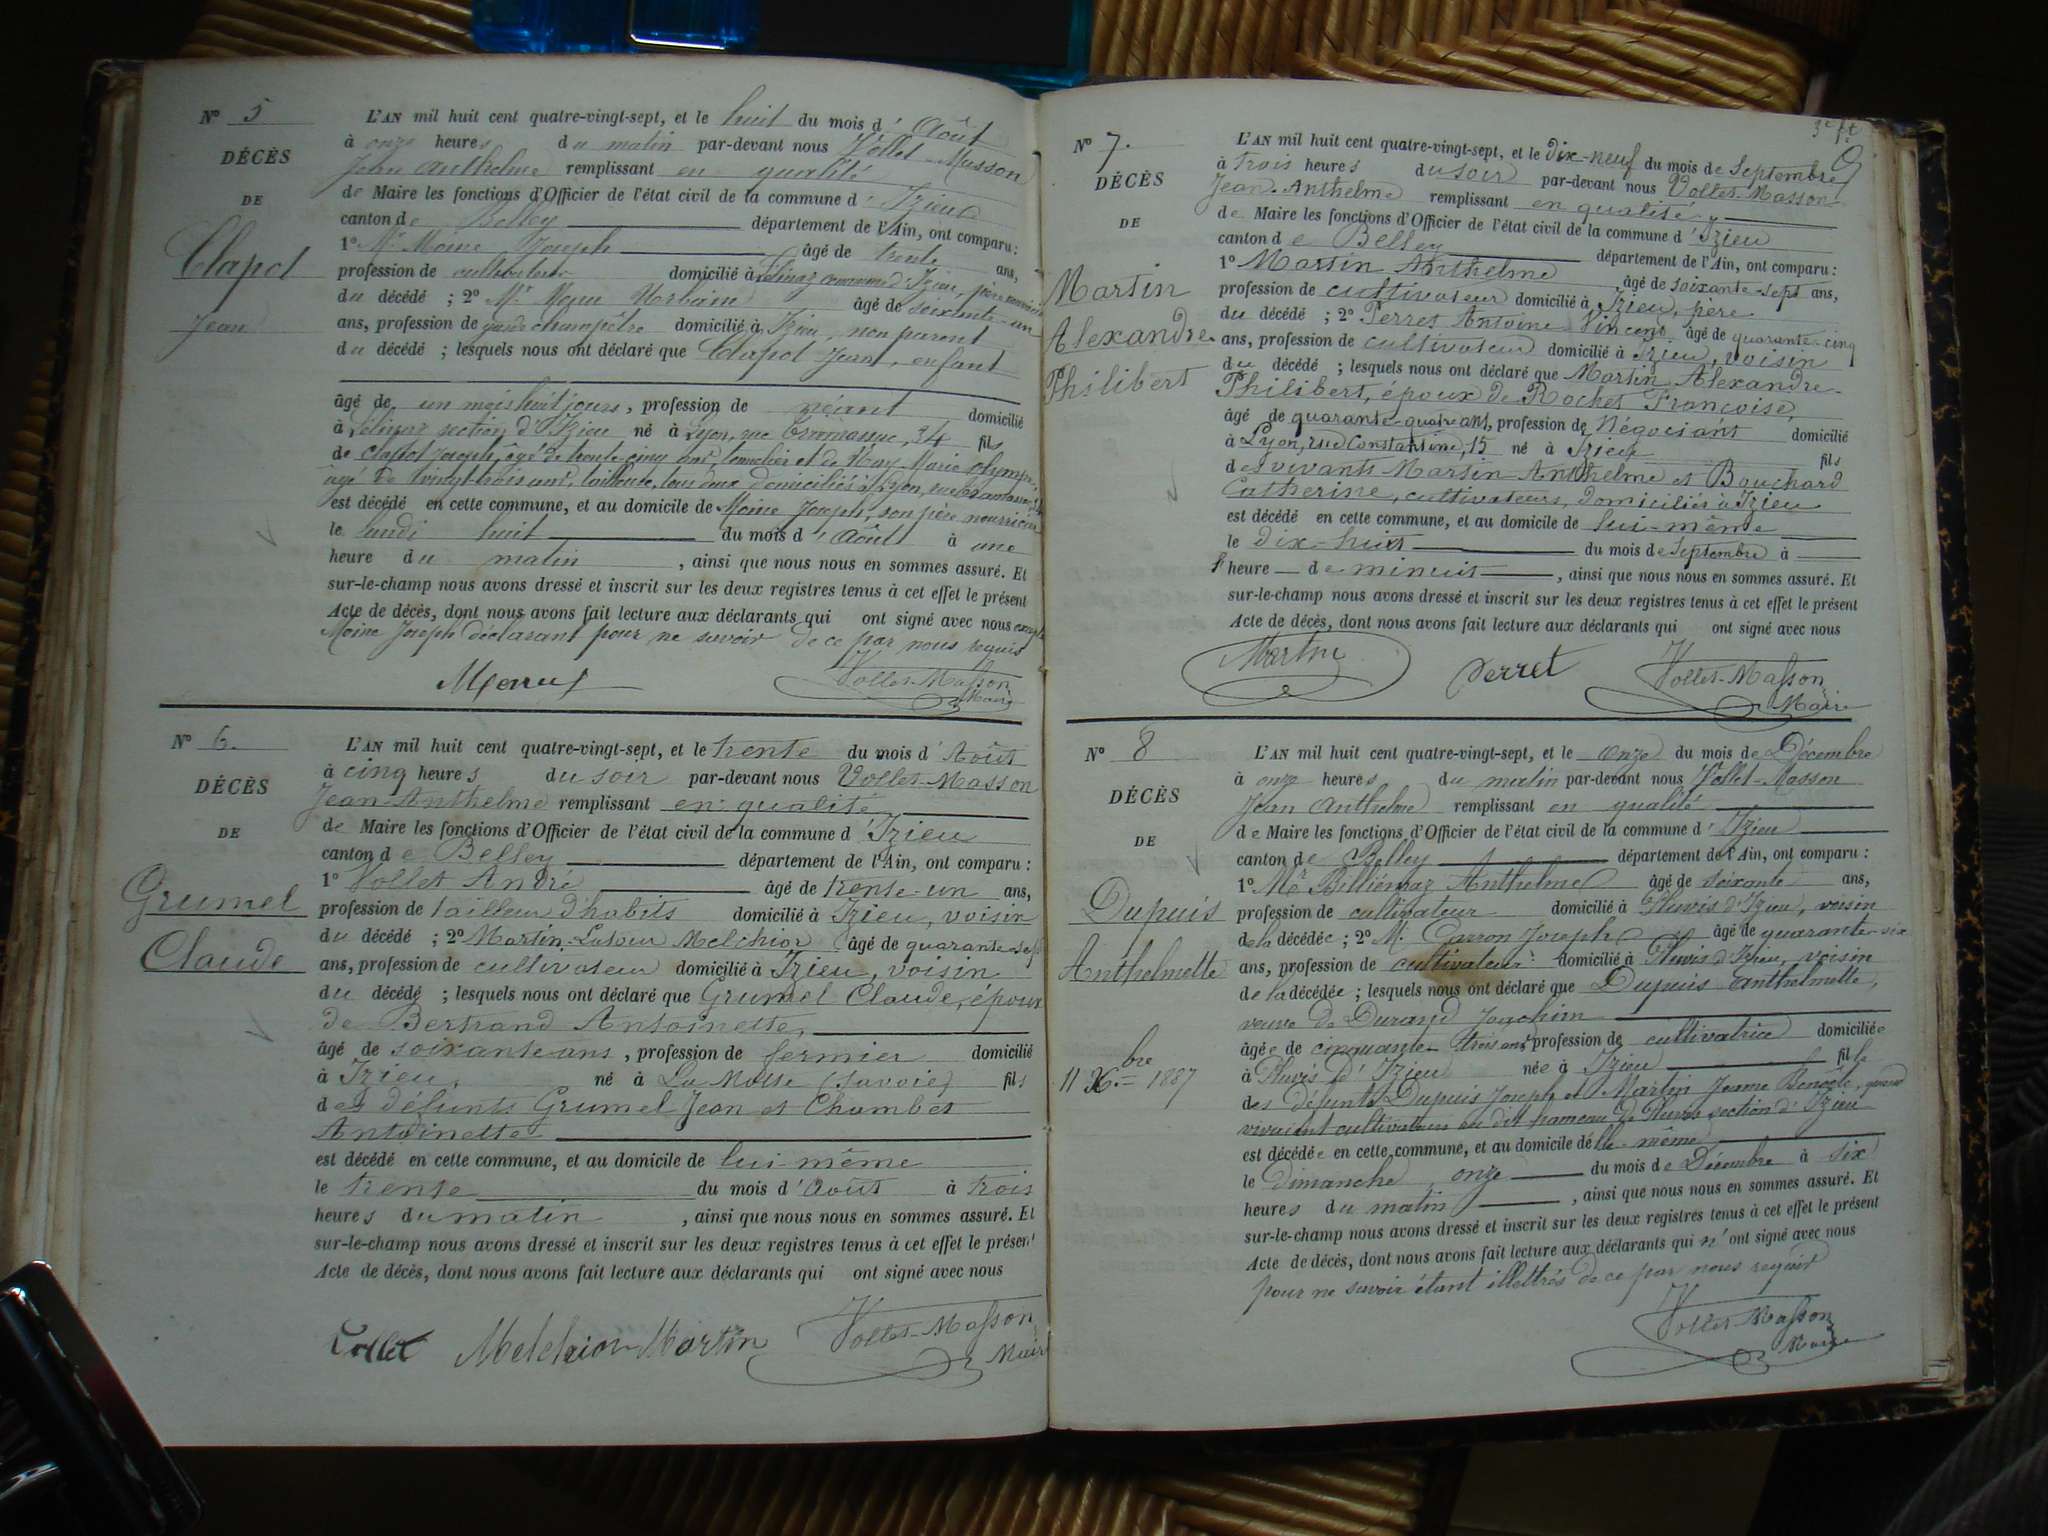 N° 5
DÉCÈS
DE
Clapot
Jean
L'AN mil huit cent quatre-vingt-sept, et le huit du mois d'Août
à onze heures du matin par-devant nous Vollet-Masson
Jean Anthelme remplissant en qualité
de Maire les fonctions d'Officier de l'état civil de la commune d'Izieu
canton de Belley département de l'Ain, ont comparu :
1° Mr Moine Joseph âgé de trente ans,
profession de cultivateur domicilié à commune d'Izieu, père nourricier
du décédé ; 2° Mr Urbain âgé de soixante-un
ans, profession de garde champêtre domicilié à Izieu, non parent
du décédé ; lesquels nous ont déclaré que Clapot Jean, enfant
âgé de un mois huit jours, profession de néant domicilié
à section d'Izieu né à Lyon, rue 34 fils
de Clapot Joseph, âgé de trente cinq ans, et de Marie Olympe,
âgé de vingt-trois ans, tailleuse, tous deux domiciliés à Lyon, rue
est décédé en cette commune, et au domicile de Moine Joseph, son père nourricier
le lundi huit du mois d'Août à une
heure du matin , ainsi que nous nous en sommes assuré. Et
sur-le-champ nous avons dressé et inscrit sur les deux registres tenus à cet effet le présent
Acte de décès, dont nous avons fait lecture aux déclarants qui ont signé avec nous excepté
Moine Joseph déclarant pour ne savoir de ce par nous requis
Vollet-Masson
Maire
N° 6.
DÉCÈS
DE
Grumel
Claude
L'AN mil huit cent quatre-vingt-sept, et le trente du mois d'Août
à cinq heures du soir par-devant nous Vollet-Masson
Jean-Anthelme remplissant en qualité
de Maire les fonctions d'Officier de l'état civil de la commune d'Izieu
canton de Belley département de l'Ain, ont comparu :
1° Vollet André âgé de trente-un ans,
profession de tailleur d'habits domicilié à Izieu, voisin
du décédé ; 2° Martin-Latour Melchior âgé de quarante-sept
ans, profession de cultivateur domicilié à Izieu, voisin
du décédé ; lesquels nous ont déclaré que Grumel Claude, époux
de Bertrand Antoinette,
âgé de soixante ans, profession de fermier domicilié
à Izieu, né à La Motte (Savoie) fils
des défunts Grumel Jean et Chambet
Antoinette
est décédé en cette commune, et au domicile de lui-même
le trente du mois d'Août à trois
heures du matin , ainsi que nous nous en sommes assuré. Et
sur-le-champ nous avons dressé et inscrit sur les deux registres tenus à cet effet le présent
Acte de décès, dont nous avons fait lecture aux déclarants qui ont signé avec nous
Vollet Melchior Martin Vollet-Masson
Maire
3e ft
N° 7.
DÉCÈS
DE
Martin
Alexandre
Philibert
L'AN mil huit cent quatre-vingt-sept, et le dix-neuf du mois de Septembre
à trois heures du soir par-devant nous Vollet-Masson
Jean-Anthelme remplissant en qualité
de Maire les fonctions d'Officier de l'état civil de la commune d'Izieu
canton de Belley département de l'Ain, ont comparu :
1° Martin Anthelme âgé de soixante-sept ans,
profession de cultivateur domicilié à Izieu, père
du décédé ; 2° Perret Antoine Vincent âgé de quarante-cinq
ans, profession de cultivateur domicilié à Izieu, voisin
du décédé ; lesquels nous ont déclaré que Martin Alexandre
Philibert, époux de Rochet Françoise,
âgé de quarante-quatre ans, profession de Négociant domicilié
à Lyon, rue Constantine, 15 né à Izieu fils
des vivants Martin Anthelme et Bouchard
Catherine, cultivateurs, domiciliés à Izieu
est décédé en cette commune, et au domicile de lui-même
le dix-huit du mois de Septembre à
heure de minuit , ainsi que nous nous en sommes assuré. Et
sur-le-champ nous avons dressé et inscrit sur les deux registres tenus à cet effet le présent
Acte de décès, dont nous avons fait lecture aux déclarants qui ont signé avec nous
Martin Perret Vollet-Masson
Maire
N° 8
DÉCÈS
DE
Dupuis
Anthelmette
11 Xbre 1887
L'AN mil huit cent quatre-vingt-sept, et le onze du mois de Décembre
à onze heures du matin par-devant nous Vollet-Masson
Jean Anthelme remplissant en qualité
de Maire les fonctions d'Officier de l'état civil de la commune d'Izieu
canton de Belley département de l'Ain, ont comparu :
1° Mr Billiémaz Anthelme âgé de soixante ans,
profession de cultivateur domicilié à Pluvis d'Izieu, voisin
de la décédée ; 2° M. Carron Joseph âgé de quarante-six
ans, profession de cultivateur domicilié à Pluvis d'Izieu, voisin
de la décédée ; lesquels nous ont déclaré que Dupuis Anthelmette,
veuve de Durand Joachim
âgée de cinquante-trois ans, profession de cultivatrice domiciliée
à Pluvis d'Izieu née à Izieu fille
des défunts Dupuis Joseph et Martin Jeanne Benoîte, quand
vivaient cultivateurs au dit hameau de Pluvis section d'Izieu
est décédée en cette commune, et au domicile d'elle-même
le Dimanche onze du mois de Décembre à six
heures du matin , ainsi que nous nous en sommes assuré. Et
sur-le-champ nous avons dressé et inscrit sur les deux registres tenus à cet effet le présent
Acte de décès, dont nous avons fait lecture aux déclarants qui n'ont signé avec nous
pour ne savoir étant illettrés de ce par nous requis
Vollet-Masson
Maire